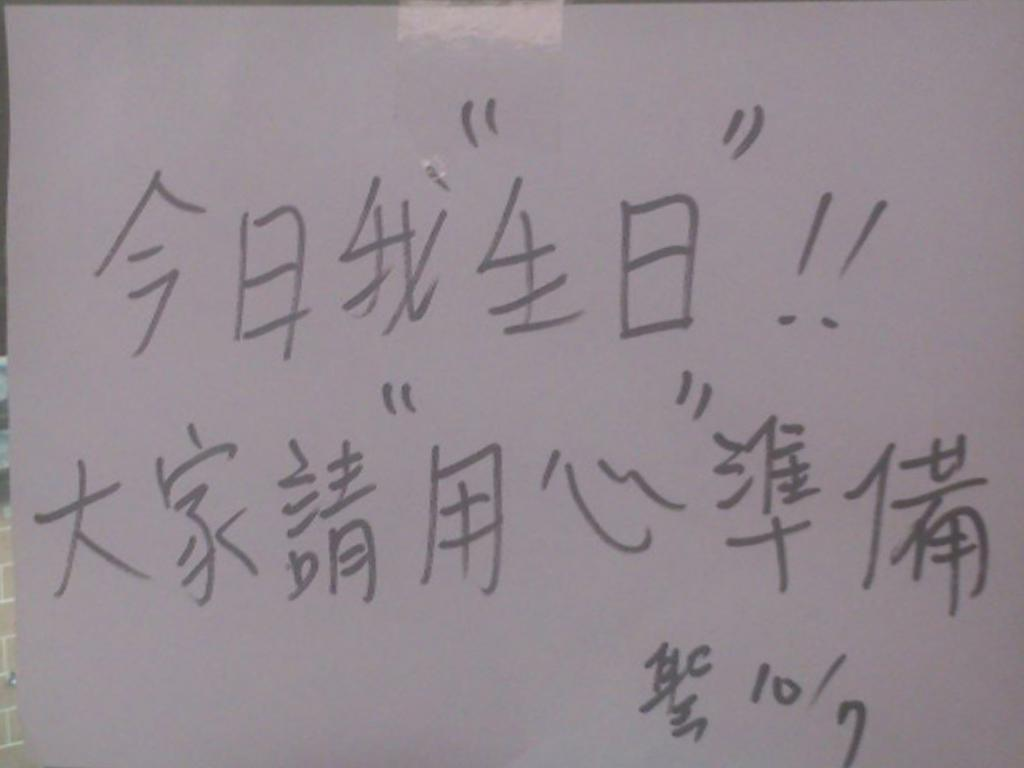 今日我“生日”!!
大家請“用心”準備
聖 10/7